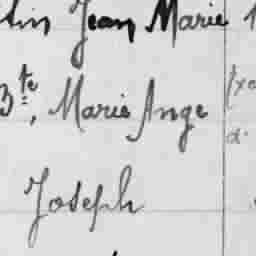 tin Jean Marie
3te, Marie Ange
Joseph